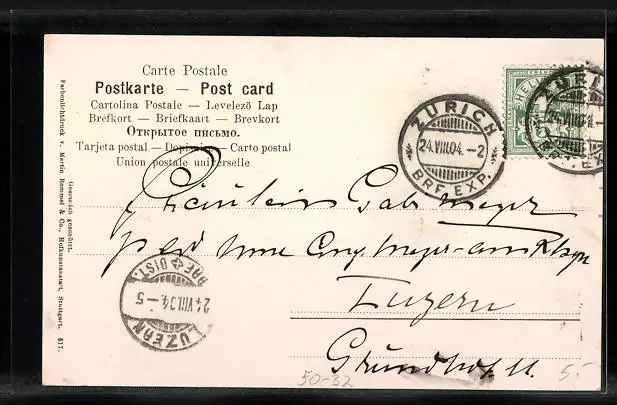 Carte Postale
Postkarte — Post card
Cartolina Postale — Levelező Lap
Brefkort — Briefkaart — Brevkort
Открытое письмо.
Tarjeta postal — Dopisnice — Carto postal
Union postale universelle
ZÜRICH
24.VIII.04.-2
BRF. EXP.
HELVETIA
24.VIII.04.-
Fräulein Gab. Meyer
Luzern
Grundhof 11.
LUZERN
24.VIII.04.-5
BRF. DIST.
Farbenlichtdruck v. Martin Rommel & Co., Hofkunstanstalt, Stuttgart. 517.
Gesetzlich geschützt.
50-32
5.-